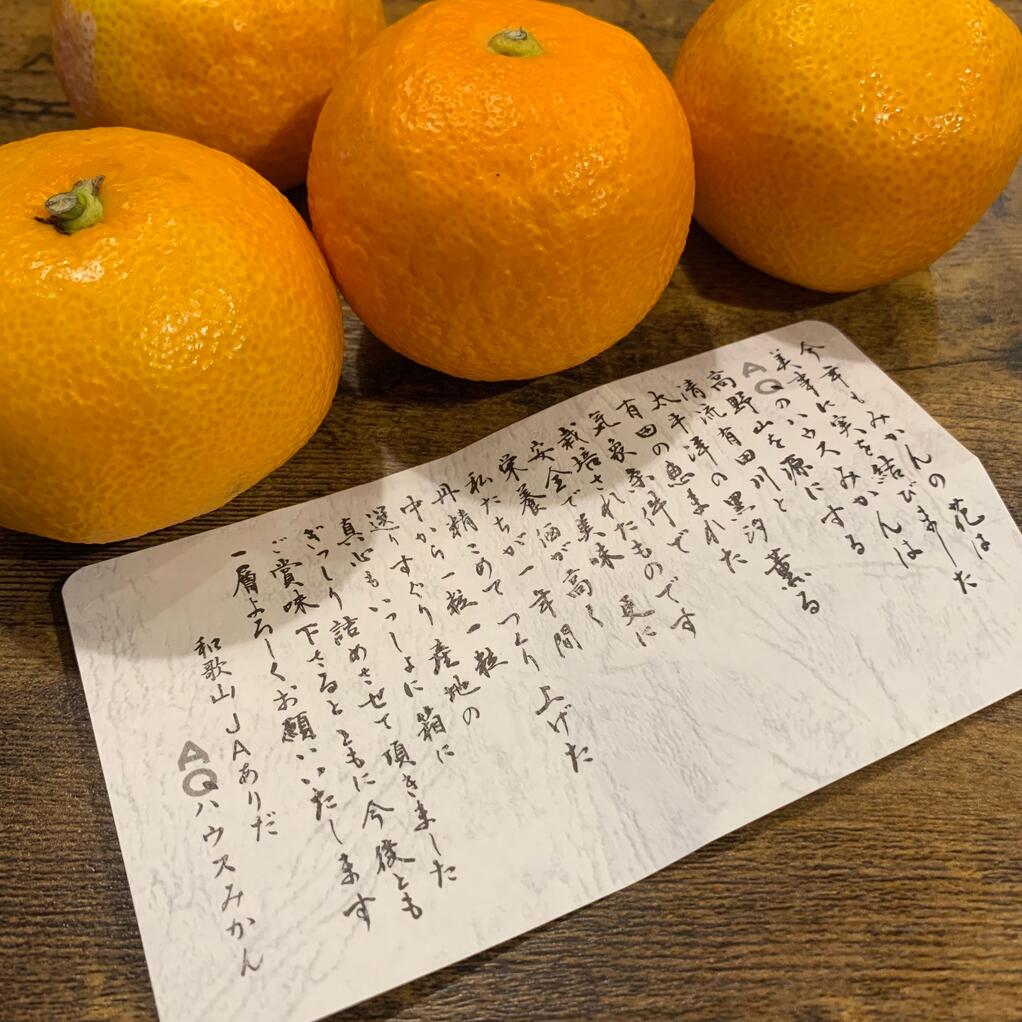 今年もみかんの花は
美事に実を結びました
AQのハウスみかんは
高野山を源にする
清流有田川と黒汐薫る
太平洋の恵まれた
有田の
気象条件で
栽培されたものです
安全で美味 更に
栄養価が高く
私たちが一年間
丹精こめてつくり上げた
中から一粒一粒
選りすぐり産地の
真心もいっしょに箱に
ぎっしり詰めさせて頂きました
ご賞味下さるとともに今後とも
一層よろしくお願いいたします
和歌山 JAありだ
AQハウスみかん